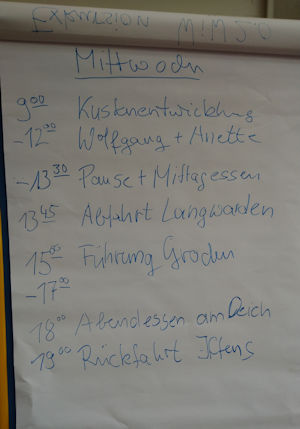 EXKURSION MIMSO
Mittwoch
9 00 Küstenentwicklung
-12 00 Wolfgang + Anette
-13 30 Pause + Mittagessen
13 45 Abfahrt Langwarden
15 00 Führung Groden
-17 00
18 00 Abendessen am Deich
19 00 Rückfahrt Iffens